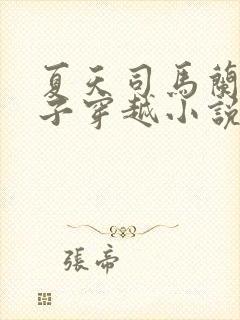 夏天司馬蘭
子穿越小說
張帝